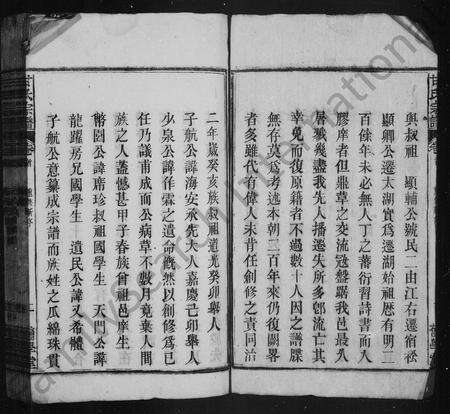 與叔祖 顯輔公號民二由江右遷宿松
顯卿公遷太湖實為遷湖始祖歷有明二
百餘年未必無人丁之蕃衍習詩書而入
膠庠者但鼎革之交流冦盤踞我邑最久
屠戮幾盡我先人播遷失所多郎流亡其
幸免而復原籍者不過數十人因之譜牒
無存莫為考述本朝二百年來仍復闕畧
者多雖代有偉人未肯任創修之責同治
二年歲癸亥族叔祖道光癸卯舉人
子航公諱海安承先大 嘉慶己卯舉人
少泉公諱作霖之遺命慨然以創修為己
任乃議甫成而公病草不數月竟棄人間
族之人盡憾甚甲子春族曾祖邑庠生
幣圍公諱席珍叔祖國學生 天門公諱
龍躍房兄國學生 道民公諱又者體
子航公意纂成宗譜而族姓之瓜綿珠貫
甘氏宗譜
FamilySearch International